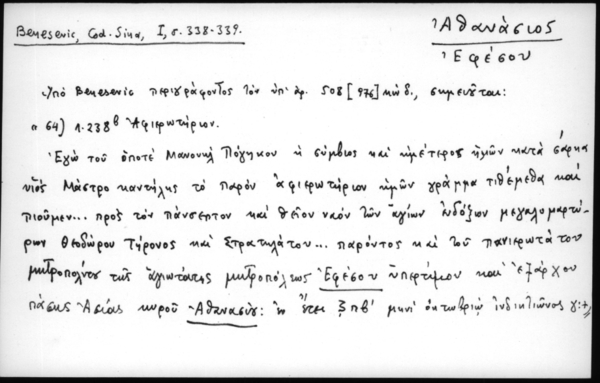 Benesevic, Cod. Sina, I, σ. 338-339.
Ἀθανάσιος
Ἐφέσου
Ὑπὸ Benesevic περιγράφοντος τὸν ὑπ' ἀρ. 508 [976] κώδ., σημειοῦται:
« 64) λ. 238β Ἀφιερωτήριον.
Ἐγὼ τοῦ ὁποτέ Μανουὴλ ἡ σύμβιος καὶ ἡμέτερος ἡμῶν κατὰ σάρκα
υἱὸς Μάστρο καντήλης τὸ παρόν ἀφιερωτήριον ἡμῶν γράμμα τιθέμεθα καὶ
πιοῦμεν... πρὸς τὸν πάνσεπτον καὶ θεῖον ναὸν τῶν ἁγίων ἐνδόξων μεγαλομαρτύ-
ρων Θεοδώρου Τύρονος καὶ Στρατηλάτου... παρόντος καὶ τοῦ πανιερωτάτου
μητροπολίτου τῆς ἁγιωτάτης μητροπόλεως Ἐφέσου ὑπερτίμου καὶ ἐξάρχου
πάσης Ἀσίας κυροῦ Ἀθανασίου: ἔτει ϛπβ' μηνὶ ὀκτωβρίῳ ἰνδικτιῶνος γ:+»